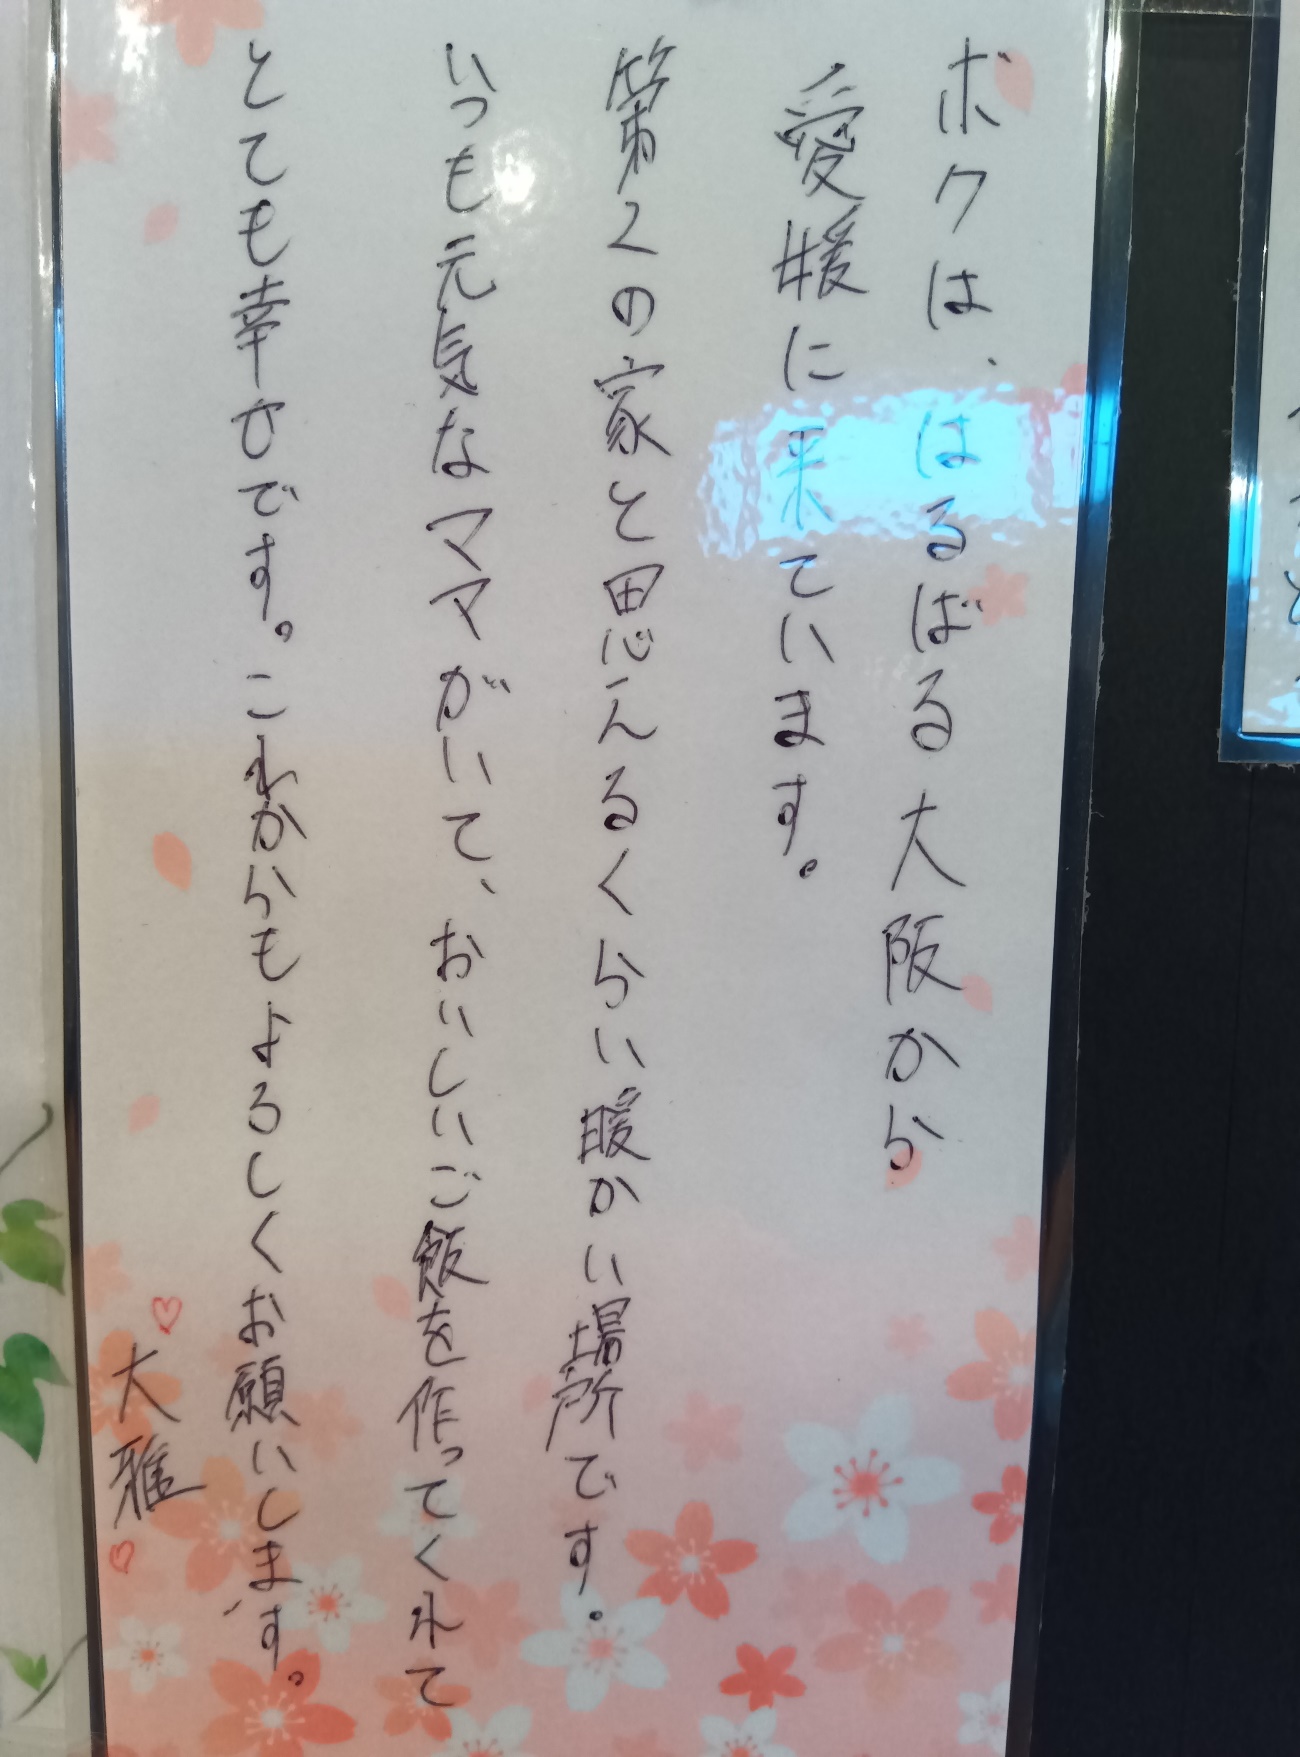 ボクは、はるばる大阪から
愛媛に来ています。
第2の家と思えるくらい暖かい場所です。
いつも元気なママがいて、おいしいご飯を作ってくれて
とても幸せです。これからもよろしくお願いします。
大雅